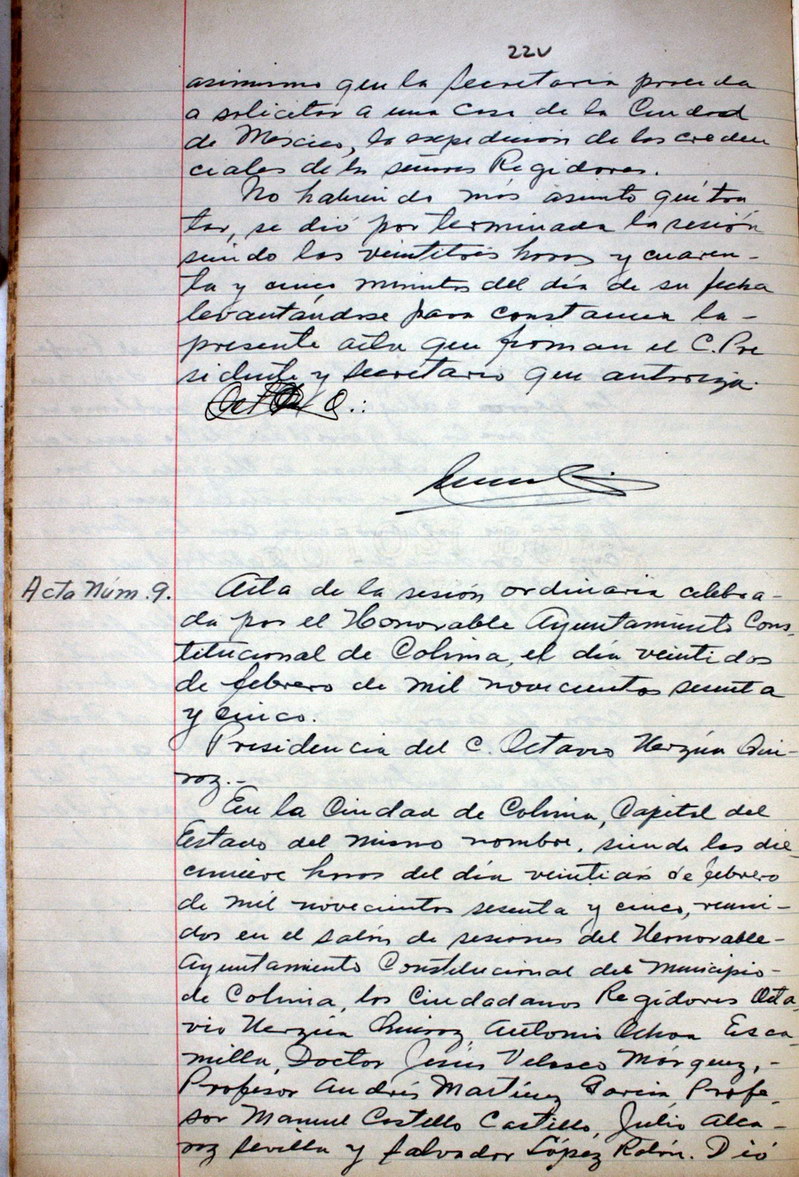 22v
asimismo que la Secretaria proceda
a solicitar a una casa de la Ciudad
de México, la expedición de las creden
ciales de los señores Regidores.
No habiendo más asunto qué tra
tar, se dió por terminada la sesión
siendo las veintitrés horas y cuaren-
ta y cinco minutos del día de su fecha
levantándose para constancia la-
presente acta que firman el C. Pre
sidente y Secretario que autoriza.
Acta Núm. 9. Acta de la sesión ordinaria celebra-
da por el Honorable Ayuntamiento Cons-
titucional de Colima, el día veintidos
de febrero de mil novecientos sesenta
y cinco.
Presidencia del C. Octavio Urzúa Qui-
roz.-
En la Ciudad de Colima, Capital del
Estado del mismo nombre, siendo las die-
cinueve horas del día veintidós de febrero
de mil novecientos sesenta y cinco, reuni-
dos en el salón de sesiones del Honorable-
Ayuntamiento Constitucional del Municipio-
de Colima, los Ciudadanos Regidores Octa-
vio Urzúa Quiroz, Antonio Ochoa Esca-
milla, Doctor Jesús Velasco Márquez,-
Profesor Andrés Martínez García, Profe-
sor Manuel Costello Castillo, Julio Alca-
roz Sevilla y Salvador López Rolón. Dió